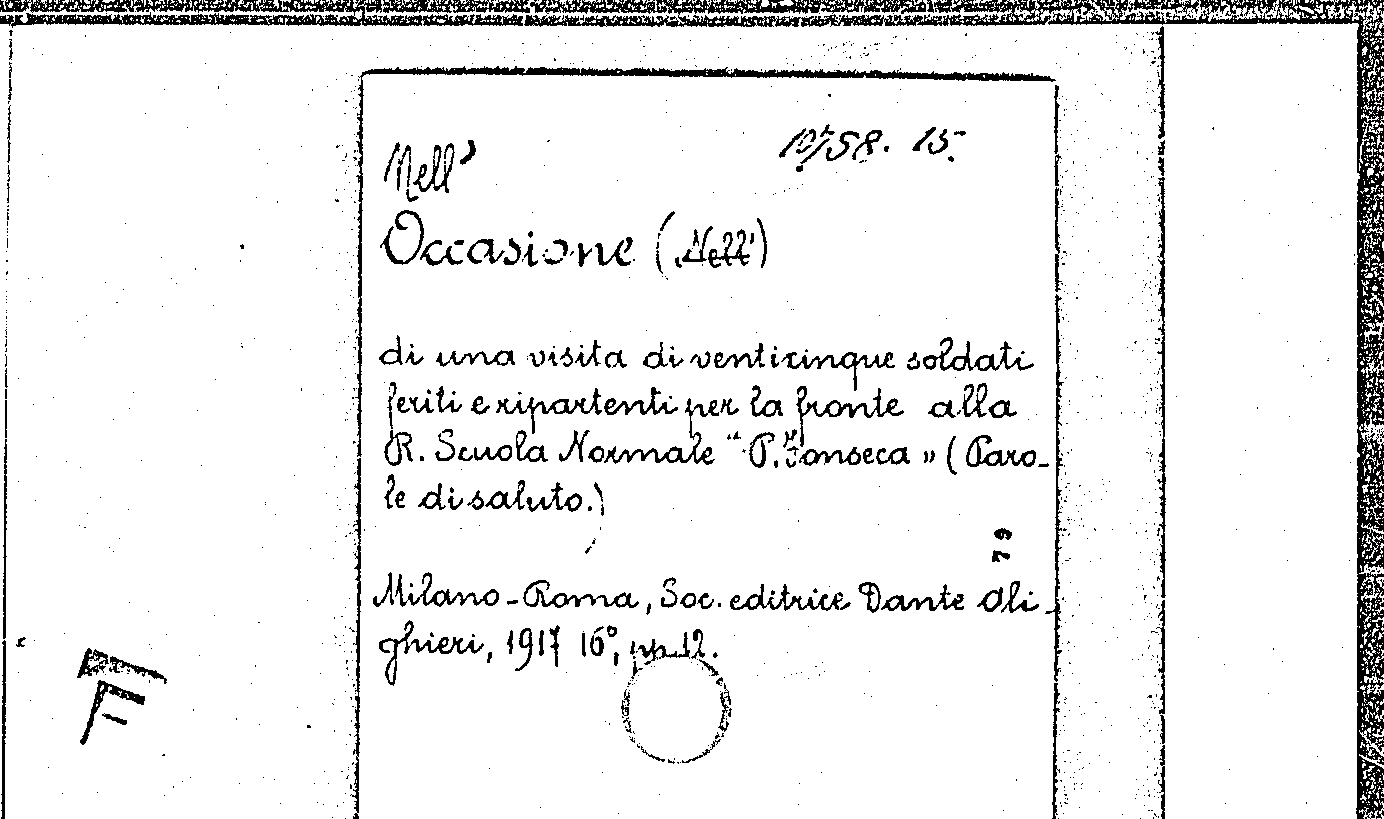 Nell'
10/58. 15.
Occasione (Nell')
di una visita di venticinque soldati
feriti e ripartenti per la fronte alla
R. Scuola Normale " P. Fonseca " (Paro-
le di saluto.)
79
Milano - Roma, Soc. editrice Dante Ali-
ghieri, 1917 16°, pp. 12.
F